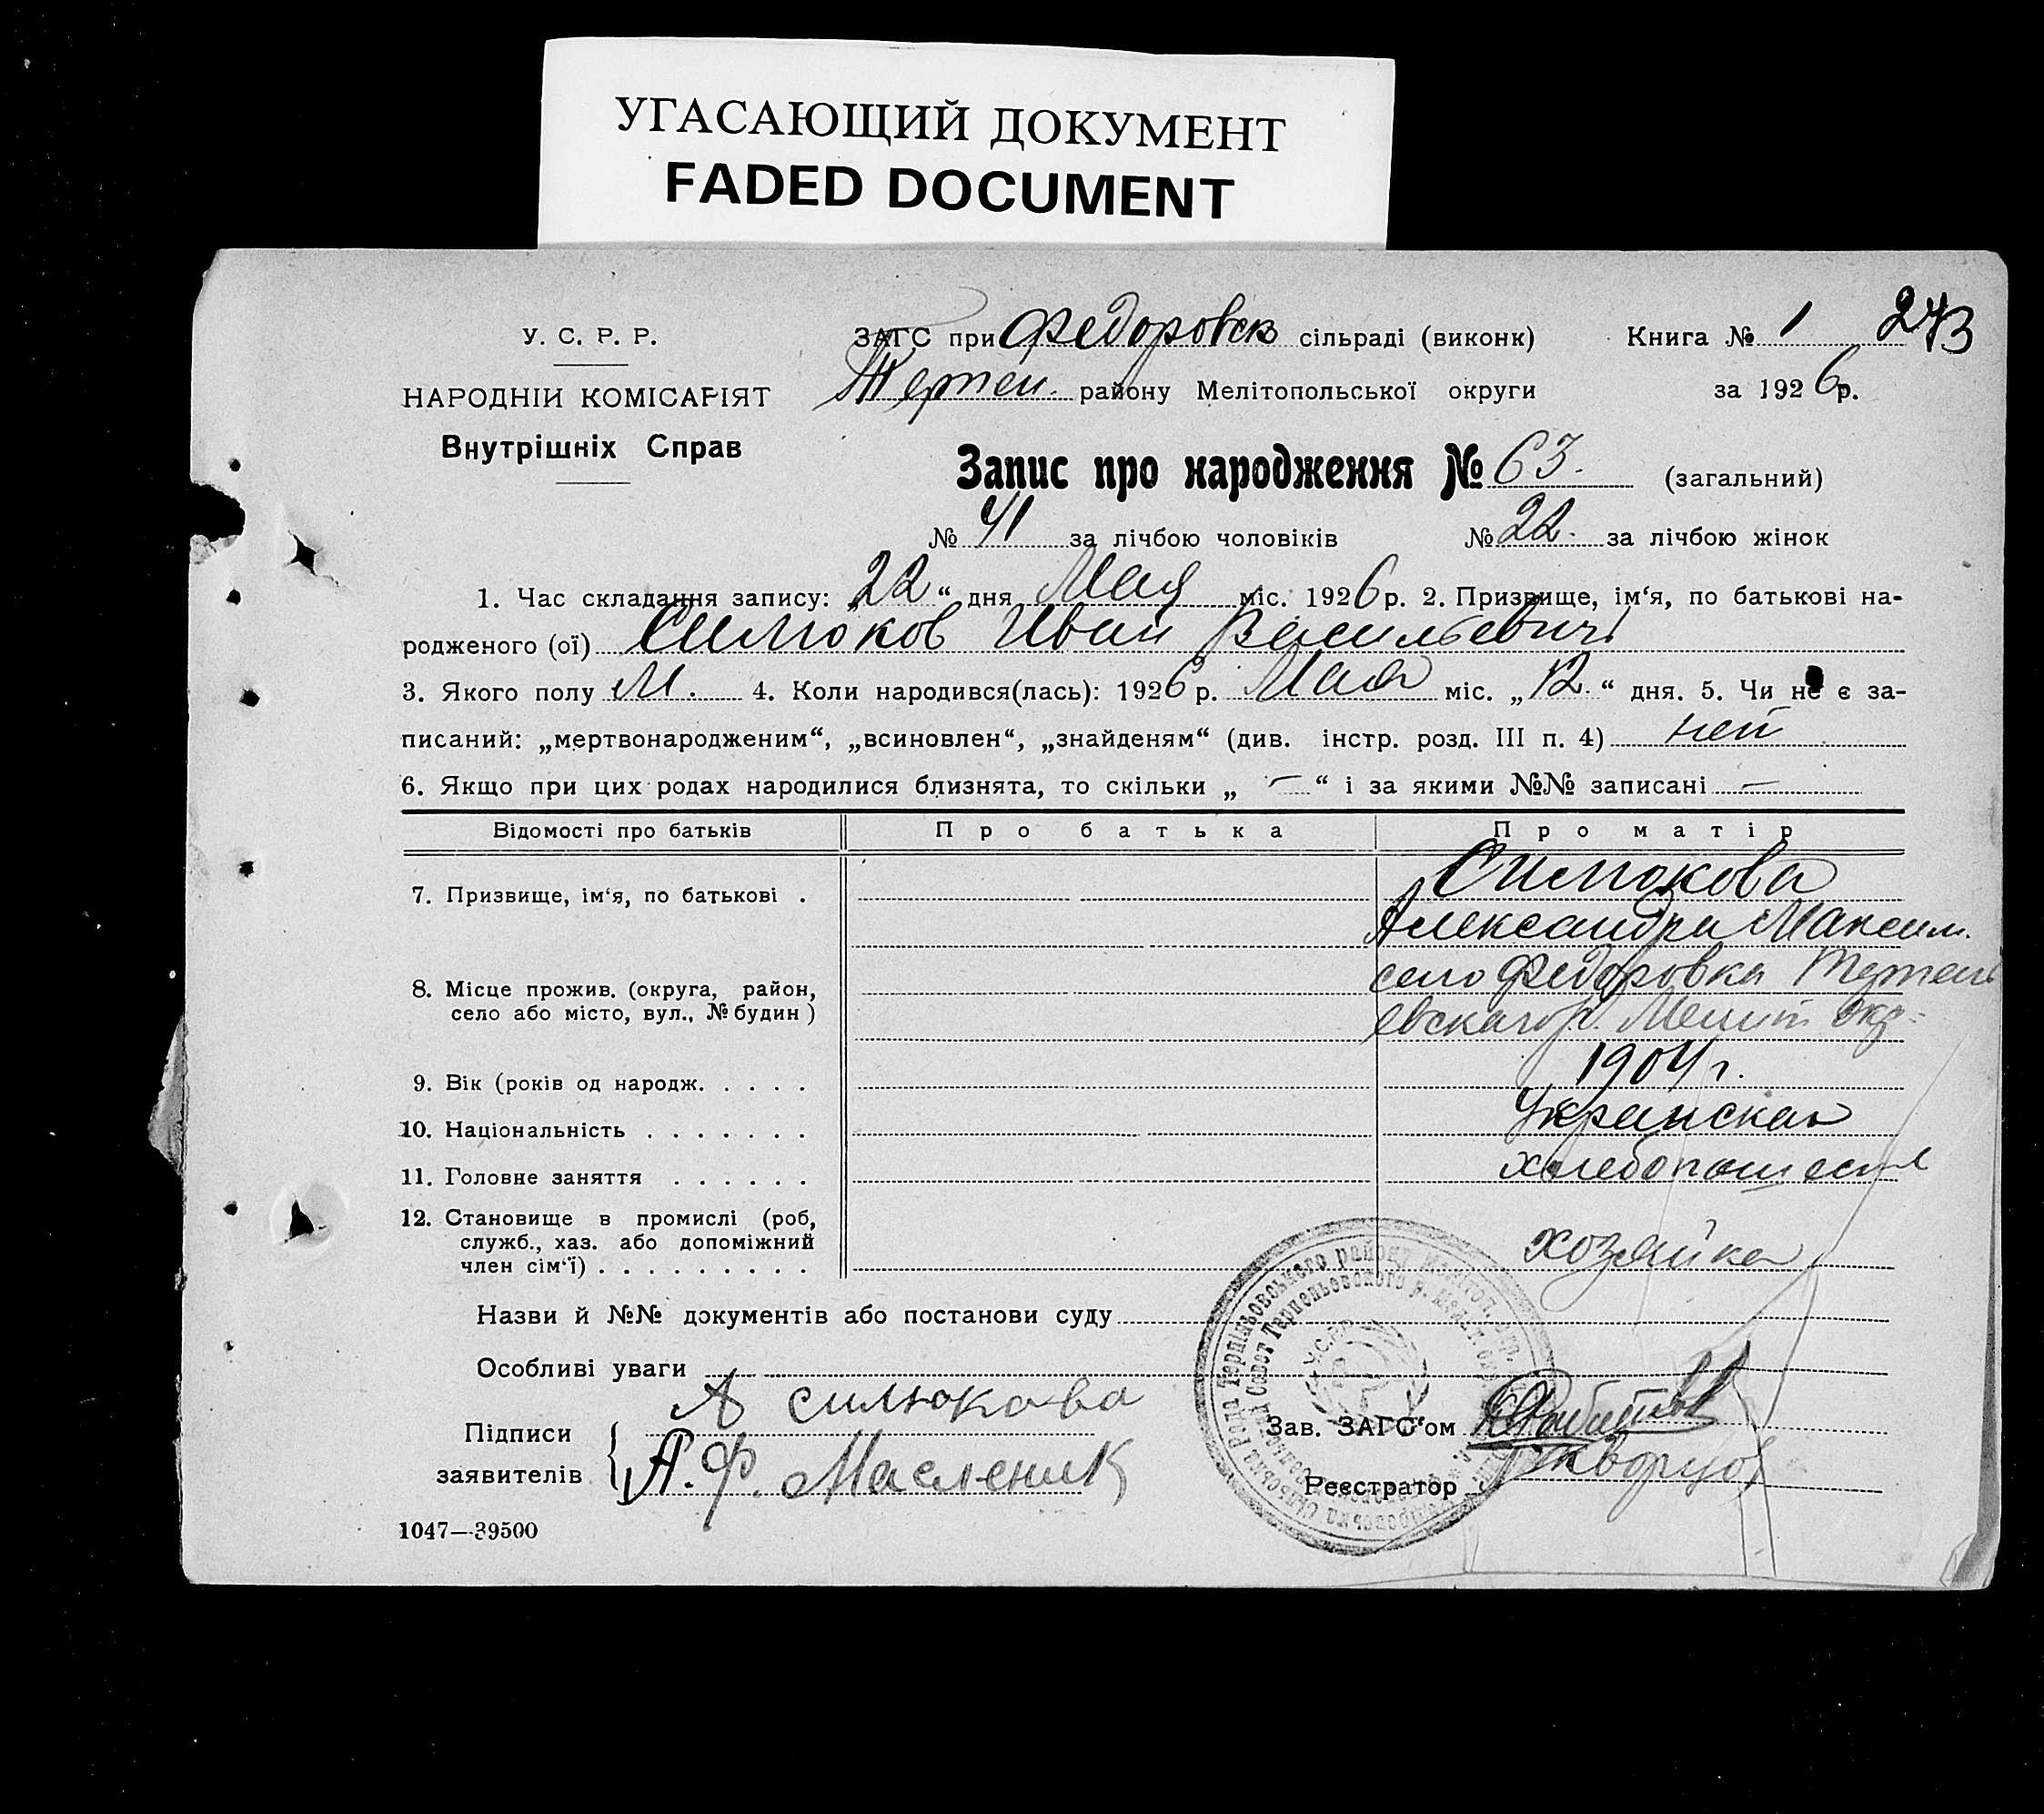 УГАСАЮЩИЙ ДОКУМЕНТ
FADED DOCUMENT
У. С. Р. Р.
НАРОДНІЙ КОМІСАРІЯТ
Внутрішніх Справ
ЗАГС при Федоровск сільраді (виконк) Книга № 1 273
Терпен. району Мелітопольської округи за 1926 р.
Запис про народження № 63. (загальний)
№ 41 за лічбою чоловіків № 22. за лічбою жінок
1. Час складання запису: „22“ дня Мая міс. 1926 р. 2. Призвище, ім‘я, по батькові на-
родженого (ої) Силюков Иван Васильевич
3. Якого полу М. 4. Коли народився(лась): 1926 р. Мая міс. „12.“ дня. 5. Чи не є за-
писаний: „мертвонародженим“, „всиновлен“, „знайденям“ (див. інстр. розд. III п. 4) нет
6. Якщо при цих родах народилися близнята, то скільки „ — “ і за якими №№ записані —
Відомості про батьків Про батька Про матір
7. Призвище, ім‘я, по батькові . Силюкова
Александра Максим.
8. Місце прожив. (округа, район, село або місто, вул., № будин)
село Федоровка Терпень
евскаго р. Мелит окр=
9. Вік (років од народж. . . . . 1904 г.
10. Національність . . . . . . . Украинская
11. Головне заняття . . . . . .
12. Становище в промислі (роб,
служб., хаз. або допоміжний
член сім‘ї) . . . . . . . . . хозяйка
Назви й №№ документів або постанови суду
Особливі уваги
Підписи заявителів
А Силюкова
А. Ф. Масленик
Зав. ЗАГС‘ом
Реєстратор Скворцов
1047—39500